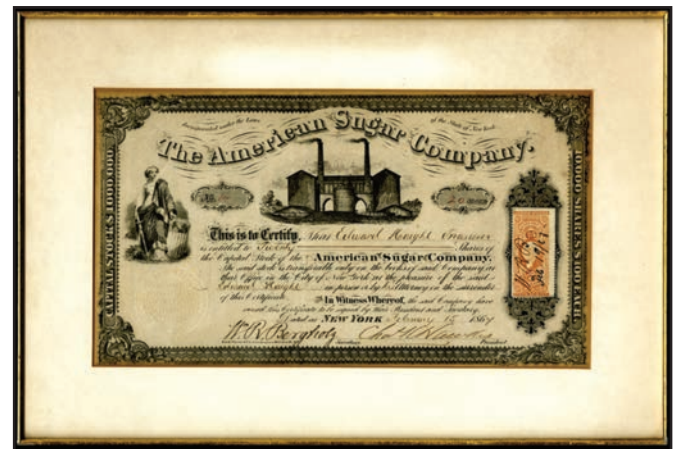 Incorporated under the Laws of the State of New York.
The American Sugar Company.
No.
CAPITAL STOCK $1,000,000.
10,000 SHARES $100 EACH.
This is to Certify, That Edward Haight
is entitled to Shares of
the Capital Stock of the American Sugar Company.
The said stock is transferable only on the books of said Company, at
their Office in the City of New York at the pleasure of the said
Edward Haight in person or by Attorney on the surrender
of this Certificate.
In Witness Whereof, the said Company have
caused this Certificate to be signed by their President and Secretary.
Dated at NEW YORK February 15 1867
W. R. Bergholz
Secretary President